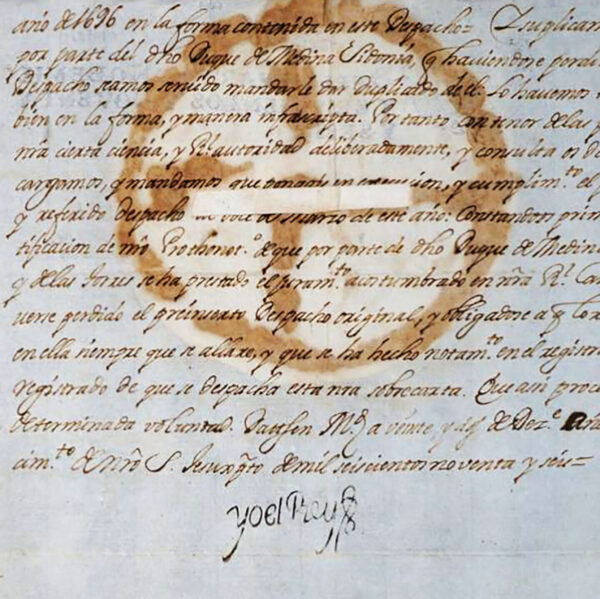 año de 1696 en la forma contenida en este Despacho= Y suplicam
por parte del dho Duque de Medina Sidonia, q haviendose perdi
Despacho seamos servido mandarle dar Duplicado de el. Lo havemos
bien en la forma, y manera infrascripta. Por tanto con tenor de las p
nra cierta ciencia, y Rl. autoridad deliberadamente, y consulta os de
cargamos, y mandamos que pongais en execucion, y cumplimto. el
y referido Despacho de Marzo de este año. Constandoos prim
tificacion de nro Prothonoto. de que por parte de dho Duque de Medina
y de las Torres se ha prestado el juramto. acostumbrado en nra Rl. Can
verse perdido el preinserto Despacho original, y obligadose a q
en ella siempre que se allare, y que se ha hecho notamto. en el registro
registrado de que se despacha esta nra sobrecarta. Que assi proc
determinada voluntad. Datt en Md. a veinte y de Deze.
cimto. de Nro S. Jesuxpto de mil seiscientos noventa y seis=
Yo el Rey